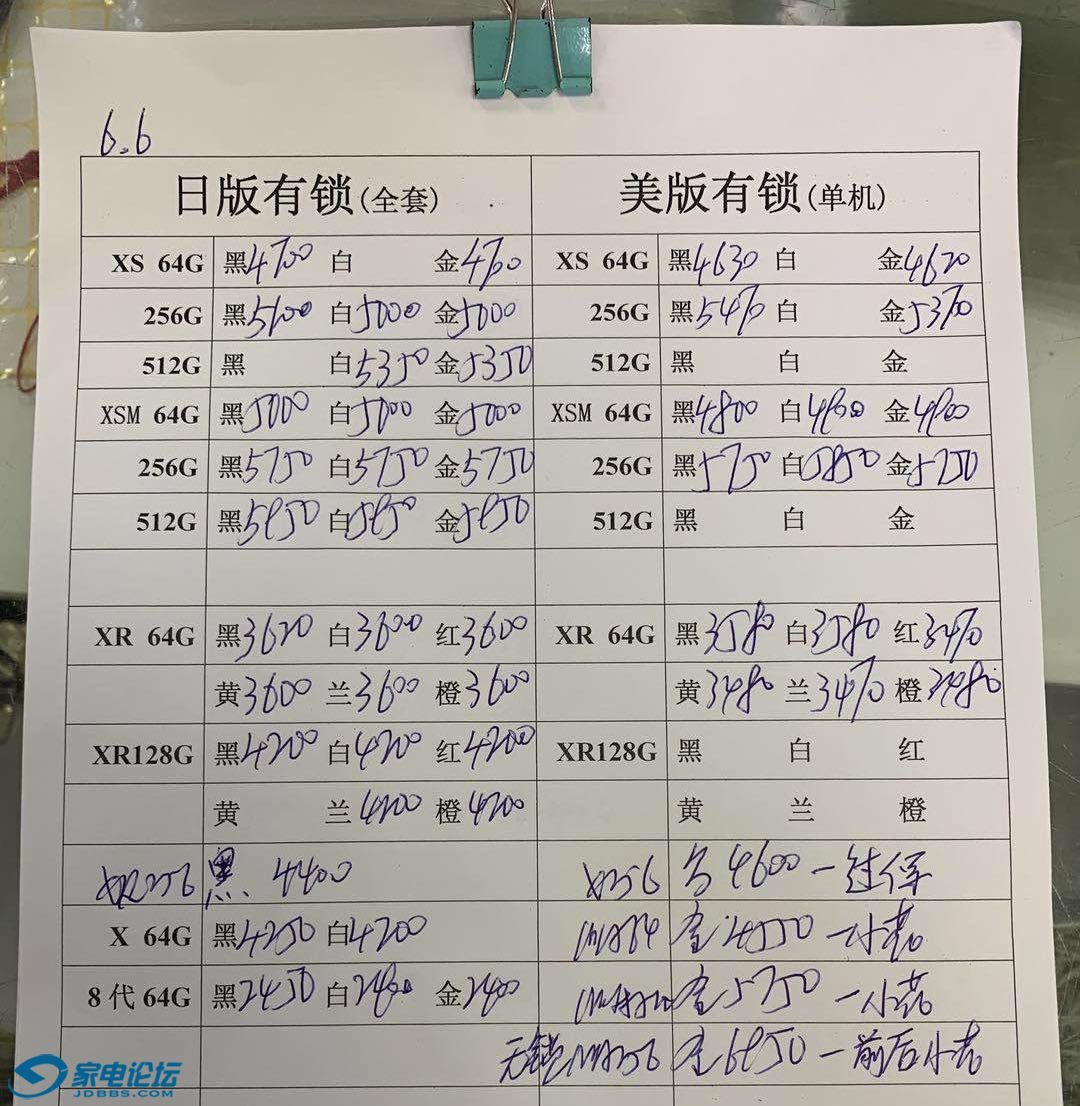 6.6
日版有锁(全套) 美版有锁(单机)
XS 64G 黑4700 白 金4700 XS 64G 黑4630 白 金4620
256G 黑5100 白5000 金5000 256G 黑5470 白 金5370
512G 黑 白5350 金5350 512G 黑 白 金
XSM 64G 黑5000 白5000 金5000 XSM 64G 黑4800 白4800 金4800
256G 黑5750 白5750 金5750 256G 黑5750 白5850 金5750
512G 黑5850 白5850 金5850 512G 黑 白 金
XR 64G 黑3620 白3600 红3600 XR 64G 黑3580 白3580 红3470
黄3600 兰3600 橙3600 黄3480 兰3470 橙3480
XR128G 黑4200 白4200 红4200 XR128G 黑 白 红
黄 兰4200 橙4200 黄 兰 橙
XR256 黑 4400 X256 4600一过保
X 64G 黑4250 白4200 金4550一小花
8代64G 黑2450 白2400 金2400 金5750一小花
无锁 256 金6850一前后小花
家电论坛
JDBBS.COM